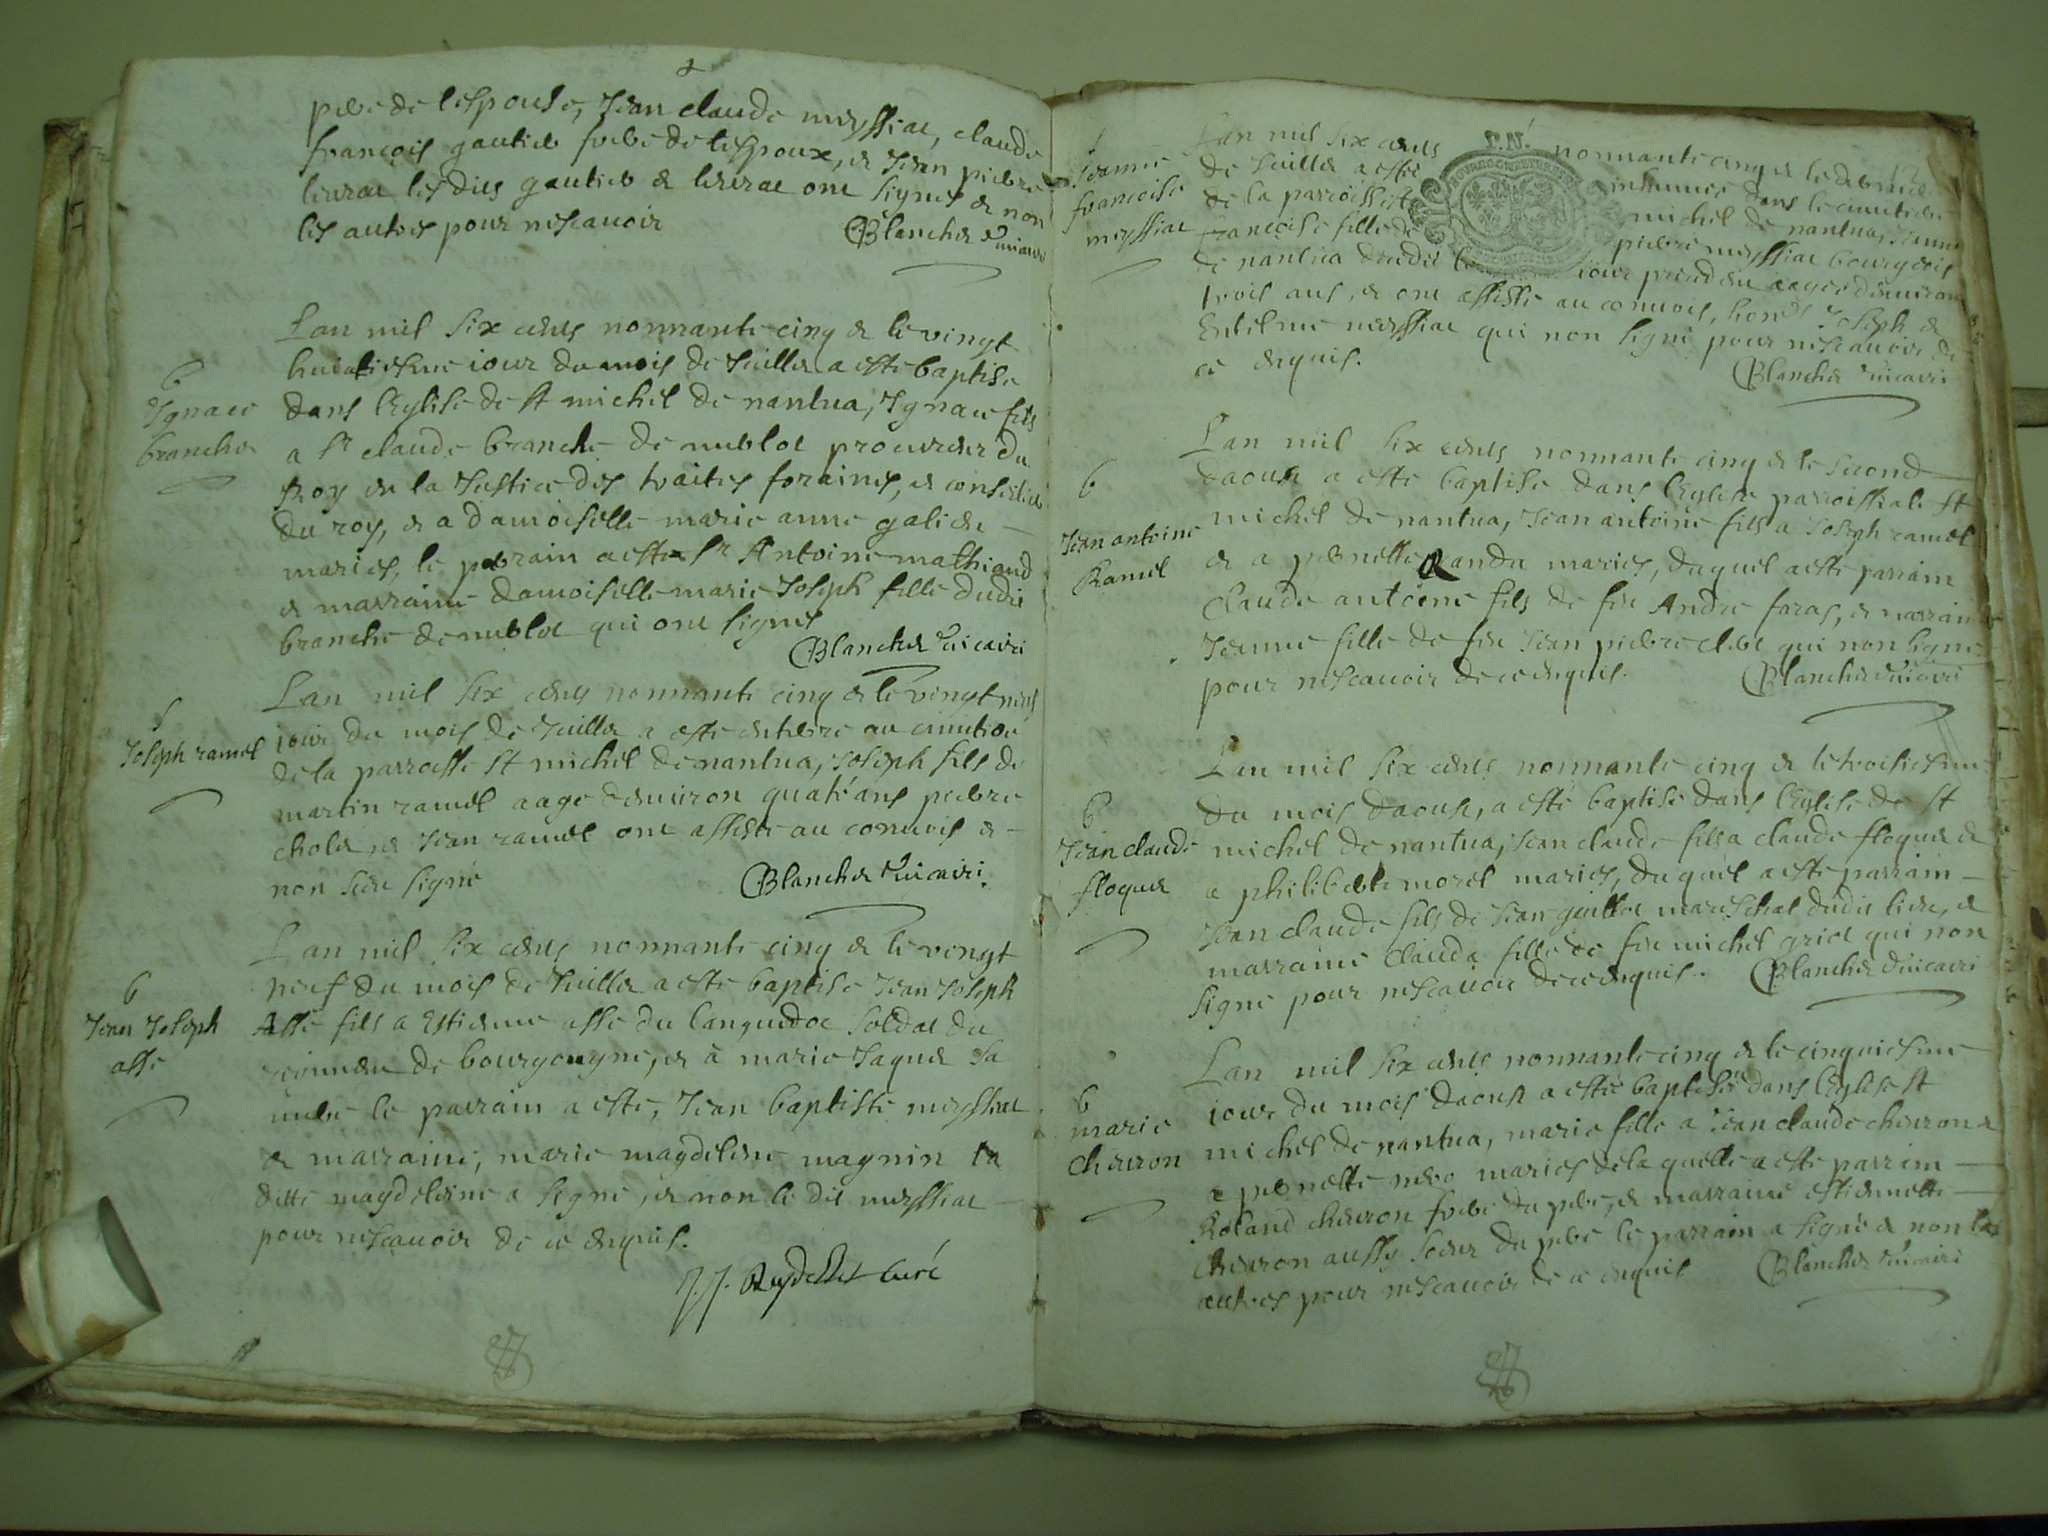 pere de lespouse, Jean claude meyssiat, claude
françois gautier frere de lespoux, et Jean pierre
levrat lesdits gautier et levrat ont signes et non
les autres pour nescavoir
Blanchet vicaire
Lan mil six cents nonnante cinq et le vingt
huictiesme iour du mois de Juillet a esté baptisé
dans leglise de st michel de nantua, Ignace fils
a sr claude branche de nublot procureur du
Roy en la Justice des traites foraines, et conseiller
du roy, et a damoiselle marie anne
maries, le parrain a esté sr Antoine mathieud
et marraine damoiselle marie Joseph fille dudit
branche de nublot qui ont signes
Blanchet vicaire
b
Ignace
branche
Lan mil six cents nonnante cinq et le vingt neuf
iour du mois de Juillet a esté enterre au cimetiere
de la parroisse st michel de nantua, Joseph fils de
martin ramel aagé denviron quatre ans pierre
cholet, et Jean ramel ont assisté au convois et
non sceu signé
Blanchet vicaire
Joseph ramel
Lan mil six cents nonnante cinq et le vingt
neuf du mois de Juillet a esté baptisé Jean Joseph
Asse fils a Estienne asse du languedoc soldat du
de bourgougne, et à marie Jaquet sa
le parrain a esté, Jean baptiste meyssiat
et marraine, marie magdeleine magnin la
ditte magdeleine a signé, et non le dit meyssiat
pour nescavoir de ce enquis.
J. J. Reydellet curé
b
Jean Joseph
asse
Lan mil six cents nonnante cinq et le dernier
de Juillet a esté inhumée dans le cimetiere
de la parroisse st michel de nantua, Jeanne
françoise fille de pierre meyssiat bourgeois
de nantua iour precedent aagée denviron
trois ans, et ont assisté au convois, Joseph et
meyssiat qui non signé pour nescavoir de
ce enquis.
Blanchet vicaire
Jeanne
françoise
meyssiat
Lan mil six cents nonnante cinq et le second
daoust a esté baptisé dans leglise parroissiale st
michel de nantua, Jean antoine fils a Joseph ramel
et a pernette Randu maries, duquel a esté parrain
Claude antoine fils de feu André faras, et marraine
Jeanne fille de feu Jean pierre qui non signé
pour nescavoir de ce enquis.
Blanchet vicaire
b
Jean antoine
Ramel
Lan mil six cents nonnante cinq et le troisiesme
du mois daoust, a esté baptisé dans leglise de st
michel de nantua, Jean claude fils a claude floquet et
a philiberte morel maries, duquel a esté parrain
Jean claude fils de Jean guillot mareschal dudit lieu, et
marraine clauda fille de feu michel qui non
signé pour nescavoir de ce enquis.
Blanchet vicaire
b
Jean claude
floquet
Lan mil six cents nonnante cinq et le cinquiesme
iour du mois daoust a esté baptisée dans leglise st
michel de nantua, marie fille a Jean claude chevron et
a pernette maries de laquelle a esté parrain
Roland chevron frere du pere, et marraine estiennette
chevron aussy soeur du pere le parrain a signé et non les
autres pour nescavoir de ce enquis
Blanchet vicaire
b
marie
chevron